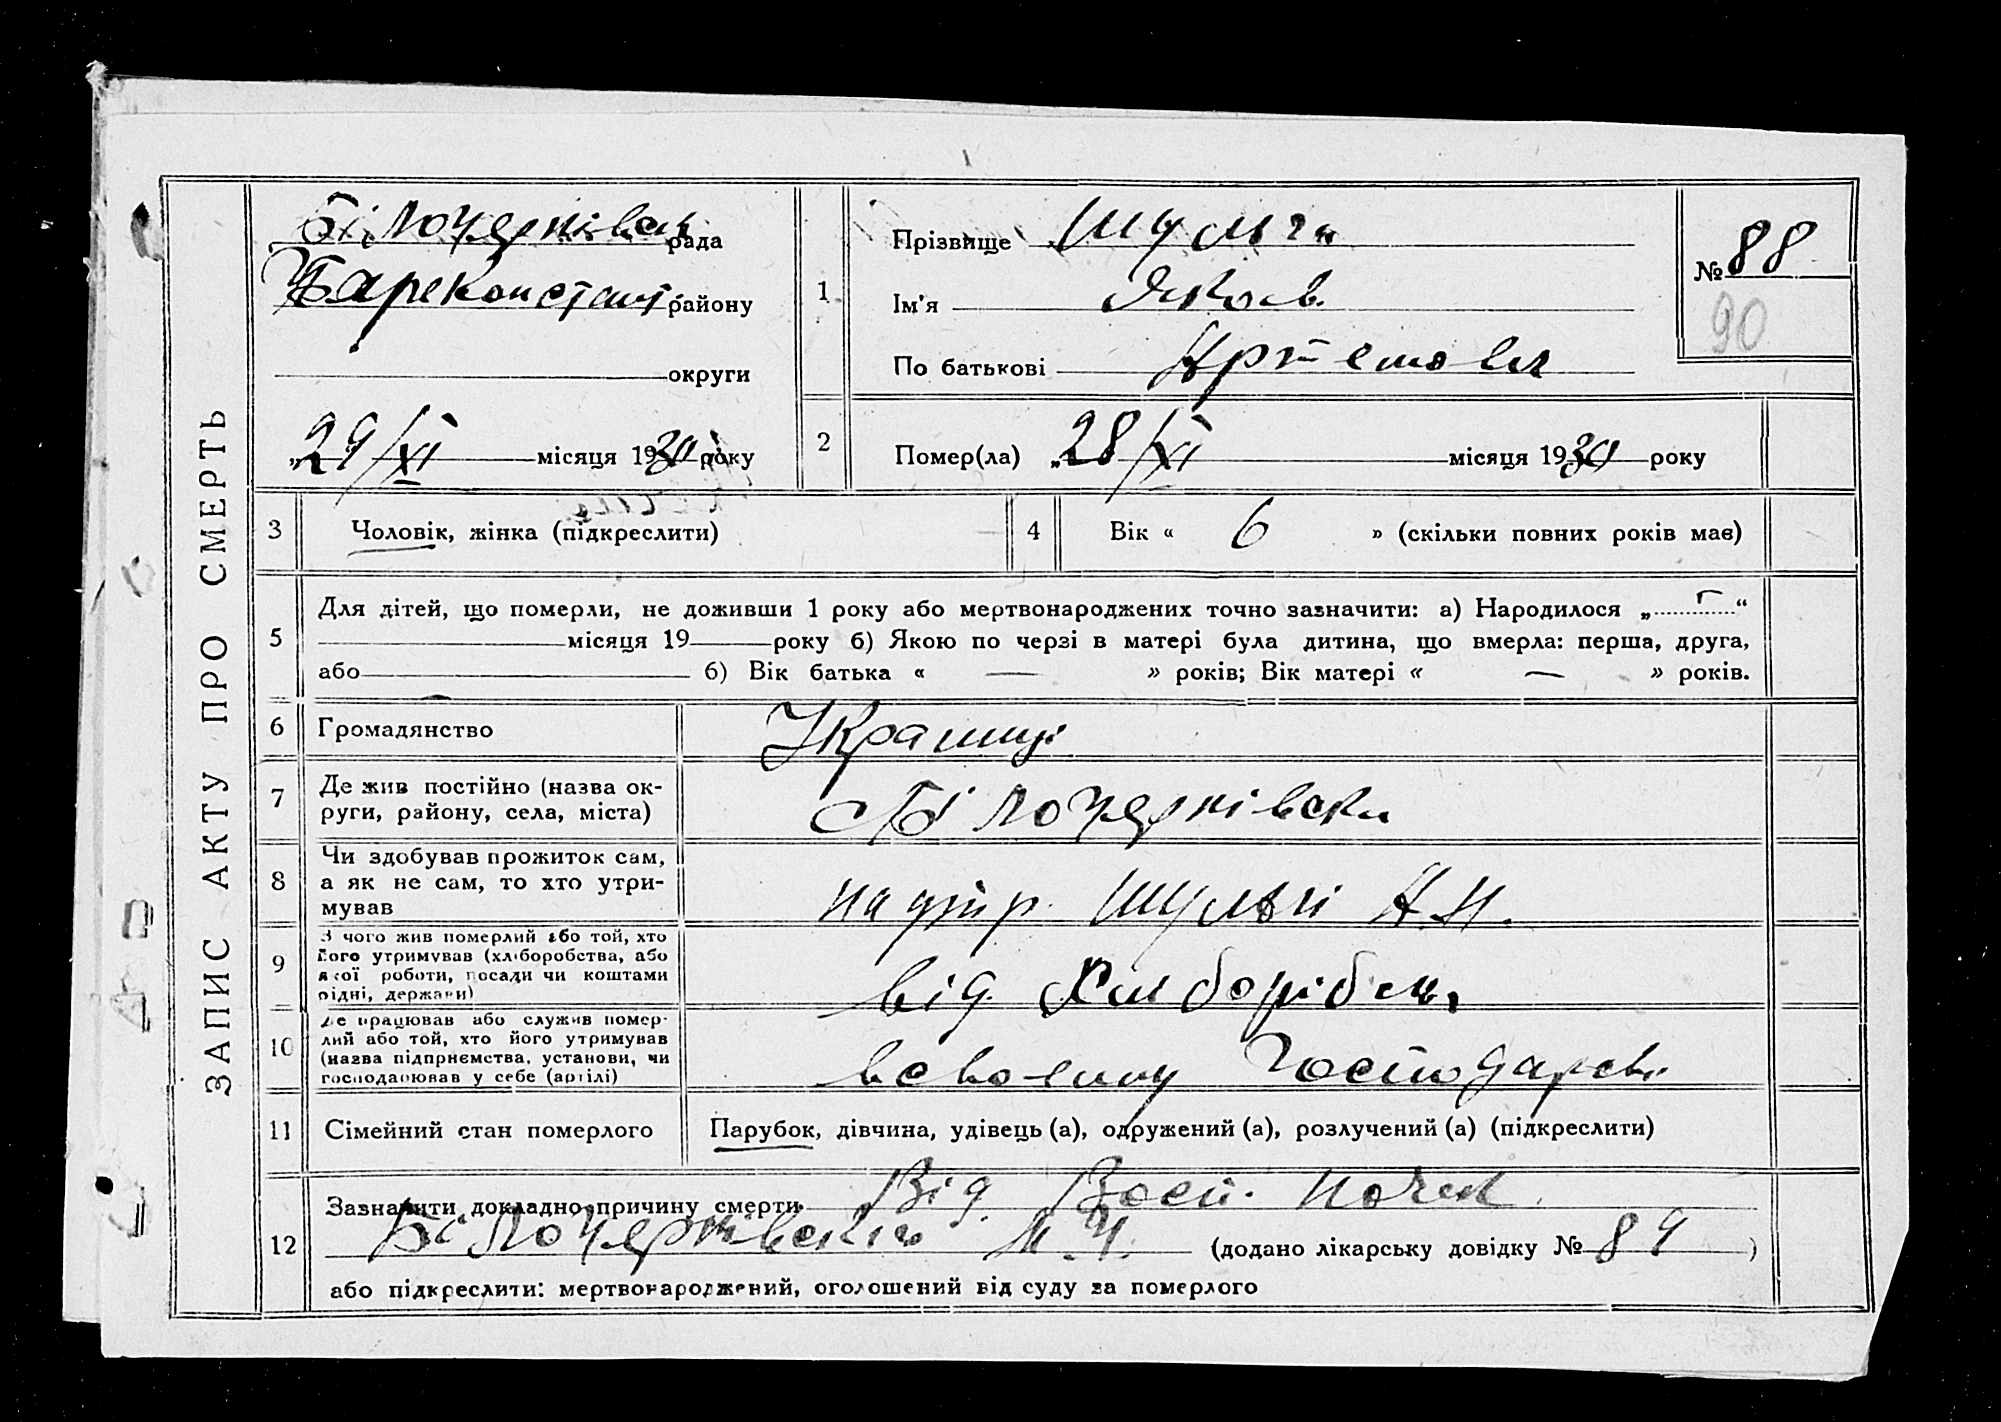 ЗАПИС АКТУ ПРО СМЕРТЬ
Білочерківськ рада
Шареконстант. району
округи
„29/XI місяця 1930 року
1
Прізвище Шульга
Ім'я Яков.
По батькові Артемович
№ 88
90
2
Помер(ла) „28/XI місяця 1930 року
3 Чоловік, жінка (підкреслити)
4 Вік « 6 » (скільки повних років має)
5 Для дітей, що померли, не доживши 1 року або мертвонароджених точно зазначити: а) Народилося „ “
місяця 19 року б) Якою по черзі в матері була дитина, що вмерла: перша, друга,
або б) Вік батька « — » років; Вік матері « — » років.
6 Громадянство Українці
7 Де жив постійно (назва ок-
руги, району, села, міста) Білочерківська
8 Чи здобував прожиток сам,
а як не сам, то хто утри-
мував
Шульги А.Н.
9 З чого жив померлий або той, хто
його утримував (хліборобства, або
якої роботи, посади чи коштами
рідні, держави)
від Хліборобст.
10 Де працював або служив помер-
лий або той, хто його утримував
(назва підприємства, установи, чи
господарював у себе (артілі)
всвоєму господарстві
11 Сімейний стан померлого Парубок, дівчина, удівець (а), одружений (а), розлучений (а) (підкреслити)
12 Зазначити докладно причину смерти Від Восп. почек
Білочерківській (додано лікарську довідку № 89 )
або підкреслити: мертвонароджений, оголошений від суду за померлого